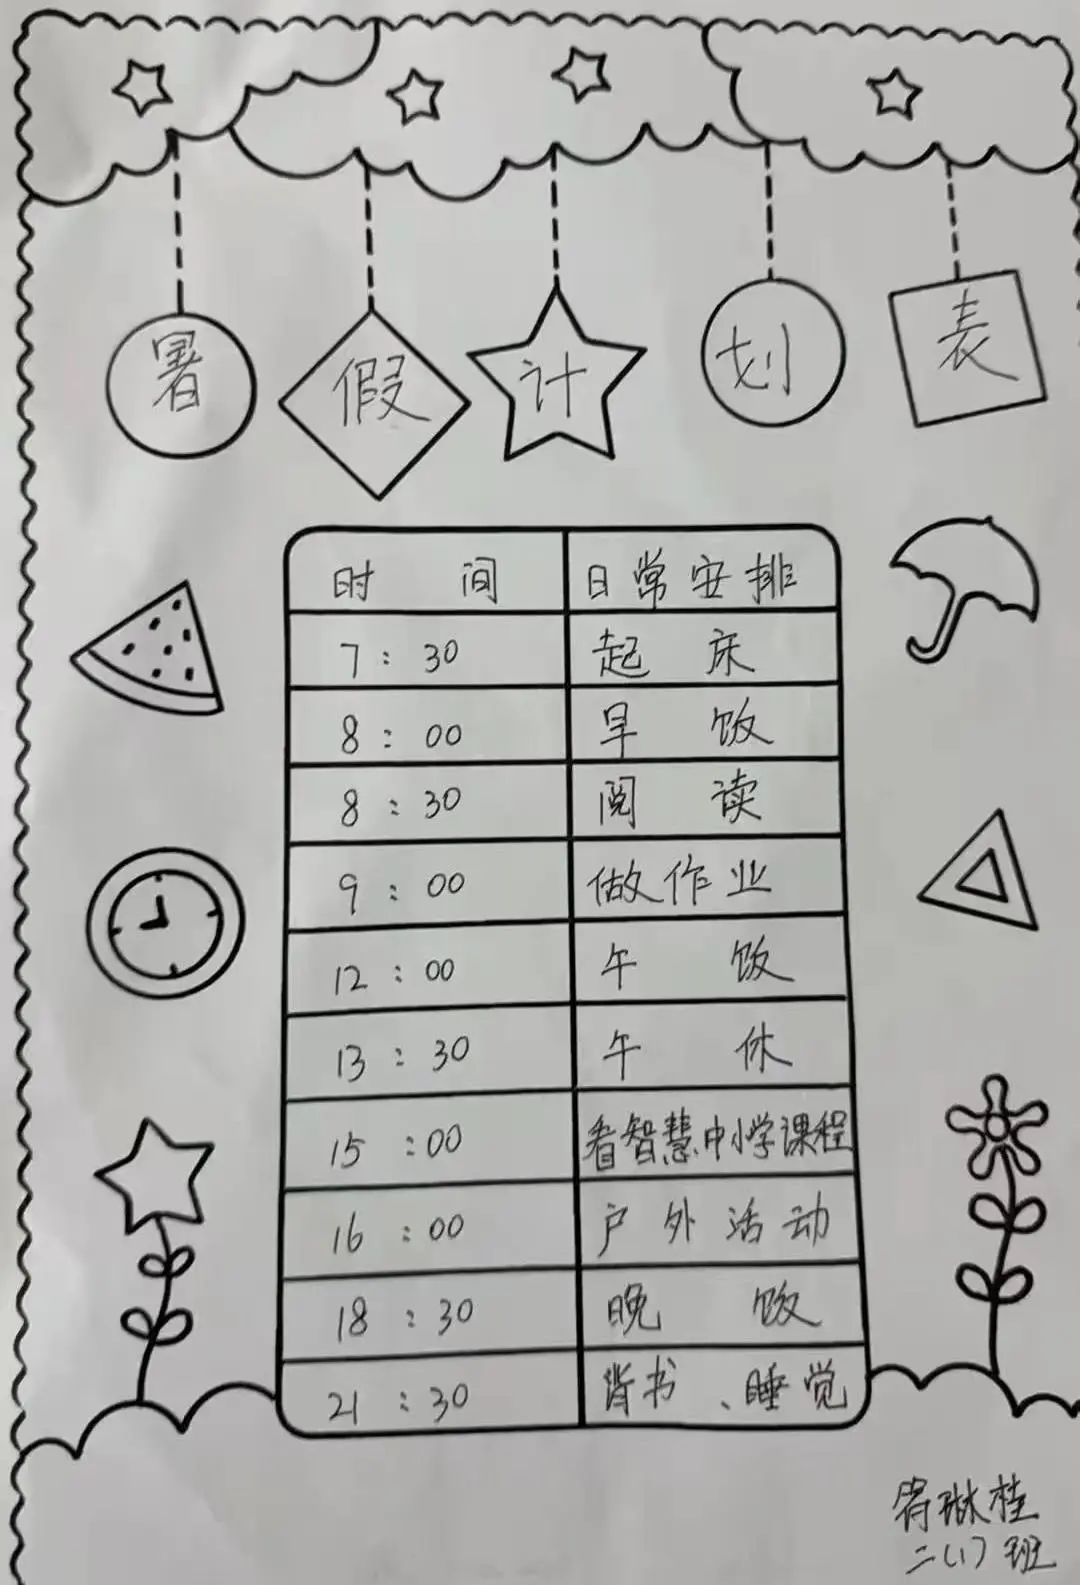 暑假计划表
时间 日常安排
7:30 起床
8:00 早饭
8:30 阅读
9:00 做作业
12:00 午饭
13:30 午休
15:00 看智慧中小学课程
16:00 户外活动
18:30 晚饭
21:30 背书、睡觉
琳桂
二(1)班